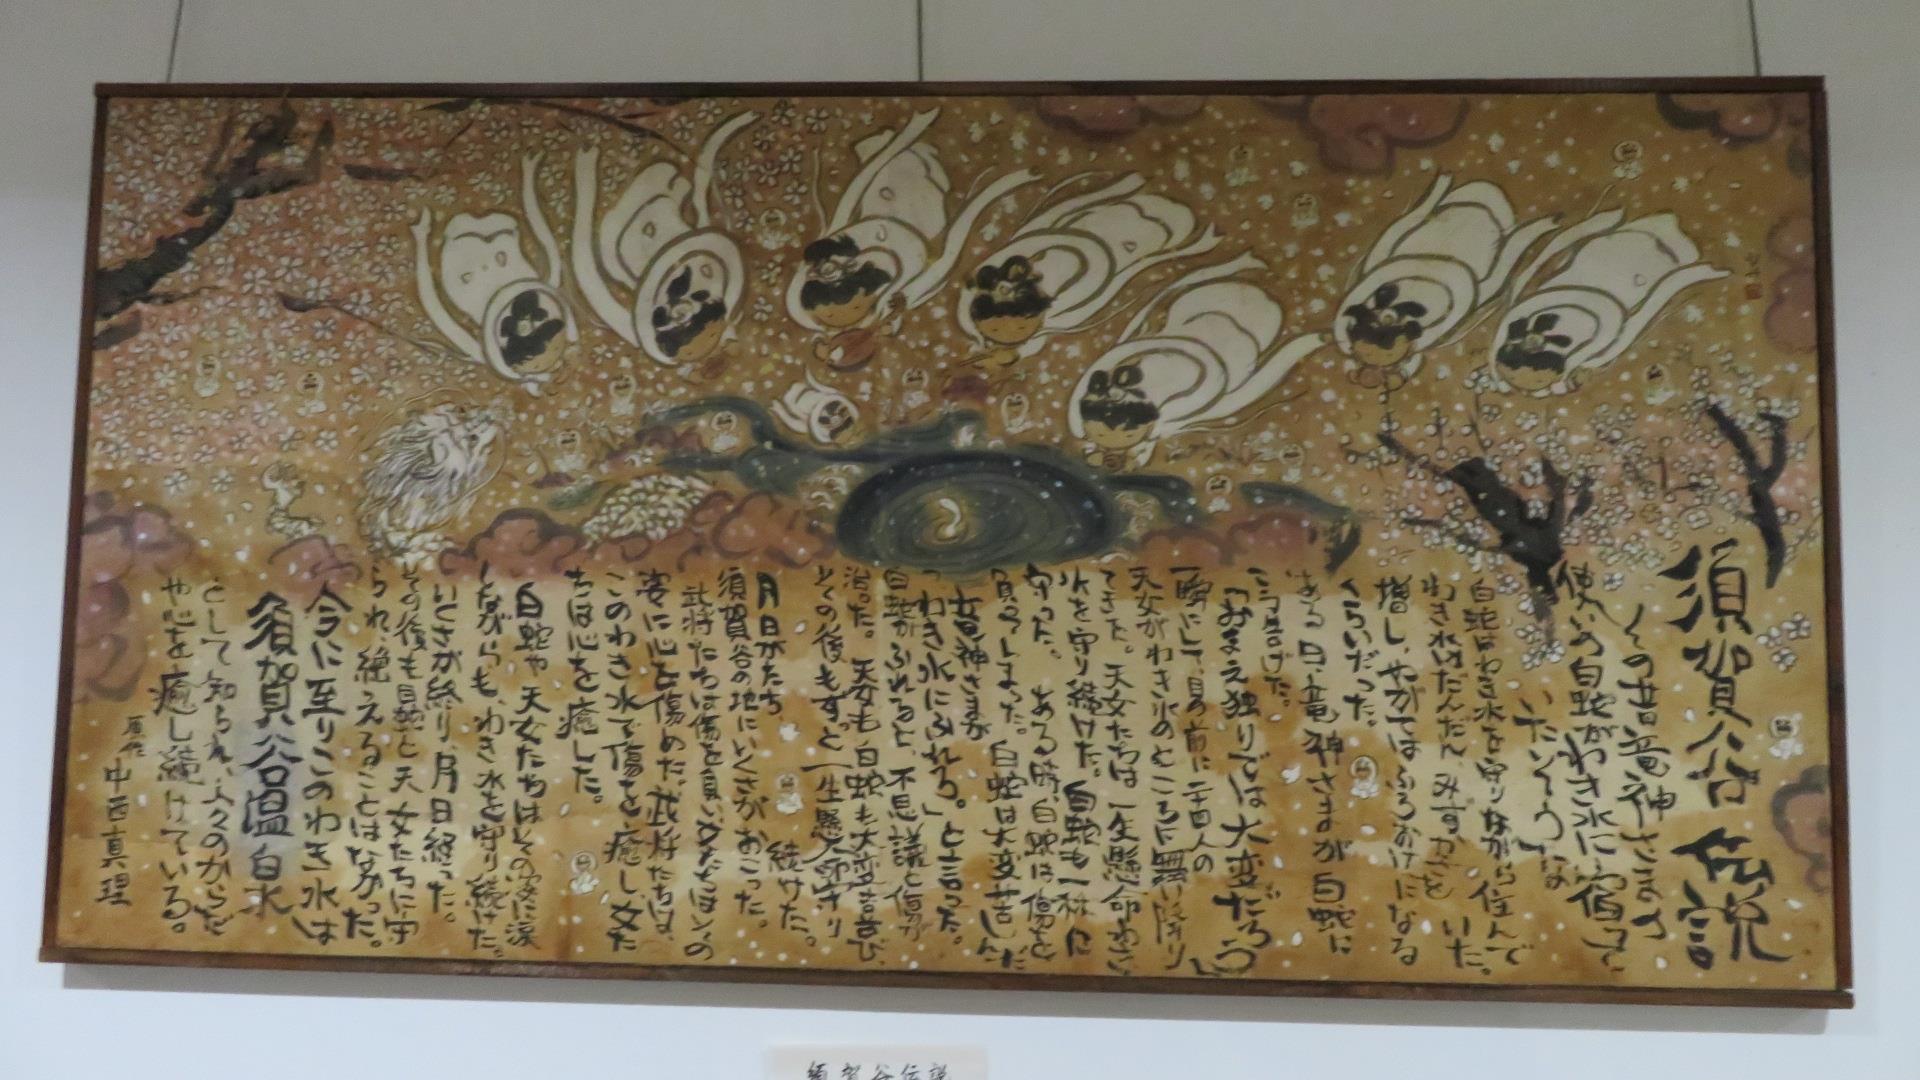 須賀谷伝説
人の昔竜神さまの
使いの白蛇がわき水に宿って
いたという
白蛇はわき水を守りながら住んで
いた。
わき水はだんだん
増し、やがては
くらいだった。
ある日竜神さまが白蛇に
こう告げた。
「おまえ独りでは大変だろう」
一瞬にして、目の前に二十四人の
天女がわき水のところに舞い降り
てきた。天女たちは一生懸命わき
水を守り続けた。白蛇も一緒に
守った。ある時、白蛇は傷を
負ってしまった。白蛇は大変苦しんだ
竜神さまが
「わき水にふれろ。」と言った。
白蛇がふれると、不思議と傷が
治った。天女も白蛇も大変喜び、
その後もずっと一生懸命守り
続けた。
月日がたち、
須賀谷の地にいくさがおこった。
武将たちは傷を負い女たちは人の
妻に心を傷めた。武将たちは、
このわき水で傷を癒し女た
ちは心を癒した。
白蛇や天女たちはその姿に涙
しながらも、わき水を守り続けた。
いくさが終り、月日経った。
その後も白蛇と天女たちに守
られ、絶えることはなかった。
今に至りこのわき水は
須賀谷温白水
として知られ、人々のからだ
や心を癒し続けている。
原作 中西真理
須賀谷伝説